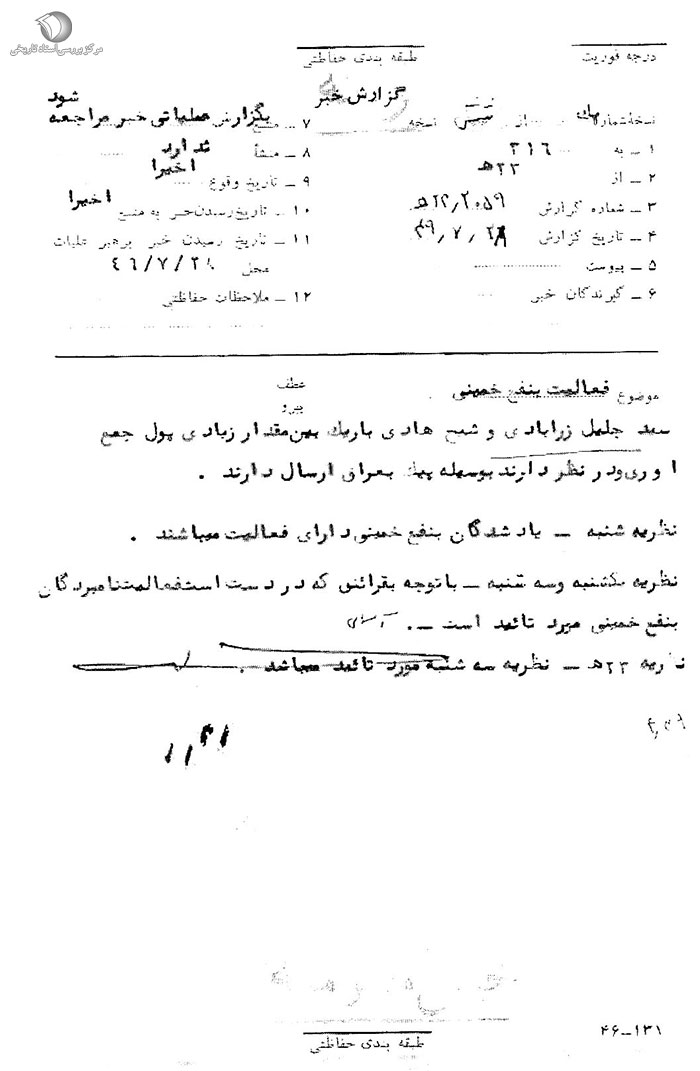 مرکز بررسی اسناد تاریخی
درجه فوریت
طبقه بندی حفاظتی
گزارش خبر
نسخه‌شماره یک از نسخه
۱ ـ به ۳۱۶
۲ ـ از ۲۳هـ
۳ ـ شماره گزارش ۲۲٫۲۰۵۹هـ
۴ ـ تاریخ گزارش
۵ ـ پیوست
۶ ـ گیرندگان خبر
۷ ـ منبع بگزارش عملیاتی خبر مراجعه شود
۸ ـ منشأ ندارد
۹ ـ تاریخ وقوع اخیرا
۱۰ ـ تاریخ رسیدن خبر به منبع اخیرا
۱۱ ـ تاریخ رسیدن خبر برهبر عملیات
محل ۴۶/۷/۲۸
۱۲ ـ ملاحظات حفاظتی
موضوع فعالیت بنفع خمینی
عطف
پیرو
سید جلیل زرابادی و شیخ هادی باریک بین‌مقدار زیادی پول جمع
اوری‌ودر نظر دارند بوسیله پیک بعراق ارسال دارند .
نظریه شنبه ـ یاد شدگان بنفع خمینی‌دارای فعالیت میباشند .
نظریه یکشنبه وسه شنبه ـ باتوجه بقرائنی که در دست است‌فعالیت‌نامبردگان
بنفع خمینی مورد تائید است ـ.
نظریه ۲۳هـ ـ نظریه سه شنبه مورد تائید میباشد .
طبقه بندی حفاظتی
۴۶ـ۱۳۱